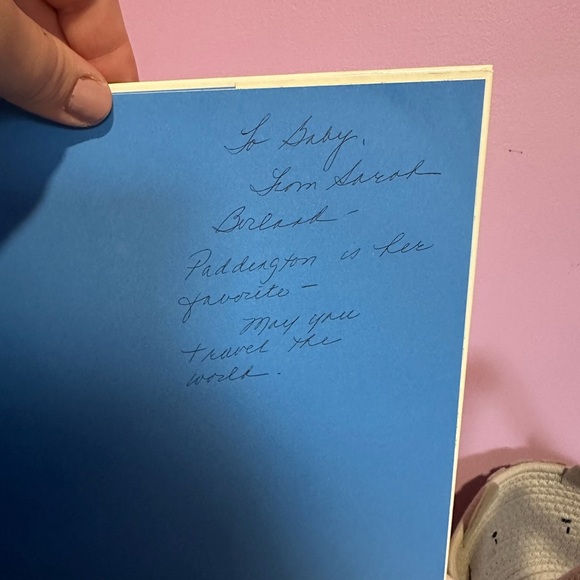 To Baby,
From Sarah
Borland –
Paddington is her
favorite –
May you
travel the
world.